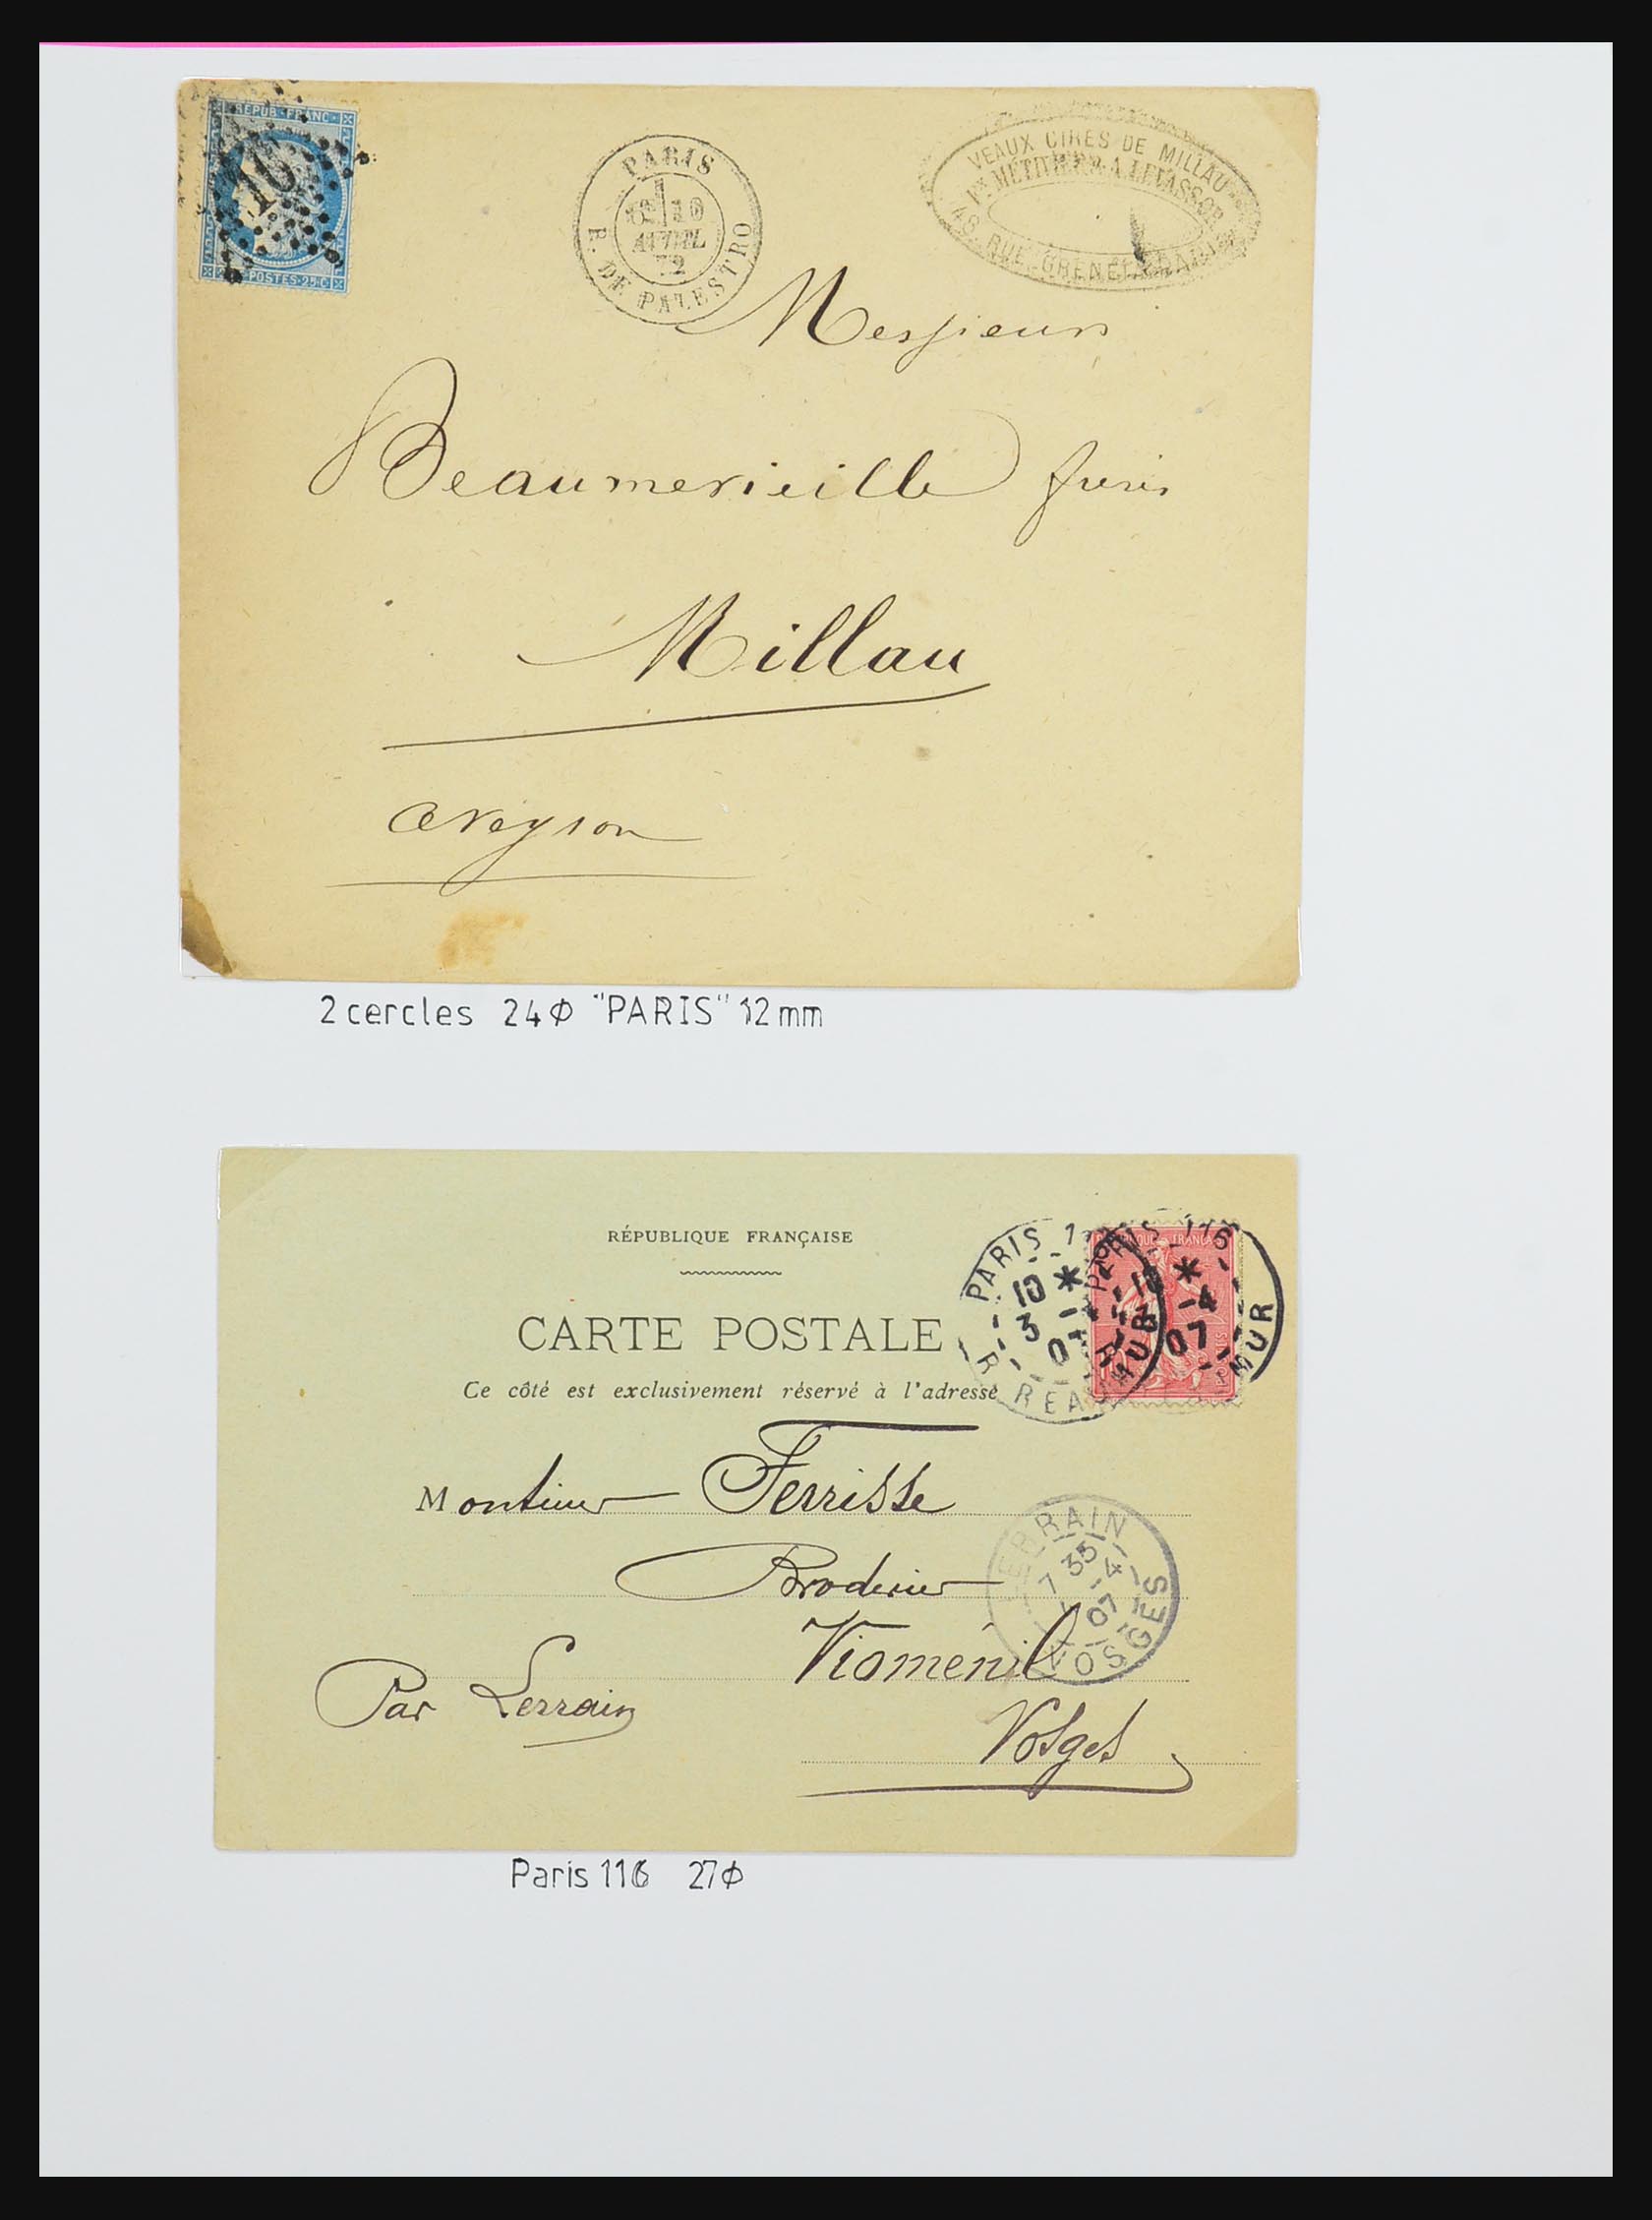 REPUB·FRANC·
16
POSTES·25·C
PARIS
10
AVRIL
72
R. DE PALESTRO
VEAUX CIRES DE MILLAU
& A. LEVASSOR
48, RUE GRENETA, PARIS
Messieurs
Beaumevieille frères
Millau
Aveyron
2 cercles 24⌀ "PARIS" 12mm
RÉPUBLIQUE FRANÇAISE
CARTE POSTALE
Ce côté est exclusivement réservé à l'adresse
PARIS 1
10 *
3 -4
07
R. REAUMUR
PARIS 116
10 *
3 -4
07
MUR
Monsieur Ferrisse
Broderies
Vioménil
Par Lerrain
Vosges
LERRAIN
7 35
4 -4
07
VOSGES
Paris 116 27⌀